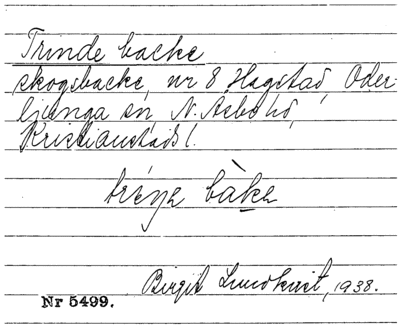 Trinde backe
skogsbacke, nr 8 Hagstad, Oder-
ljunga sn, N. Åsbo hd,
Kristianstads l.
bàke
Birgit Lundkvist, 1938.
Nr 5499.